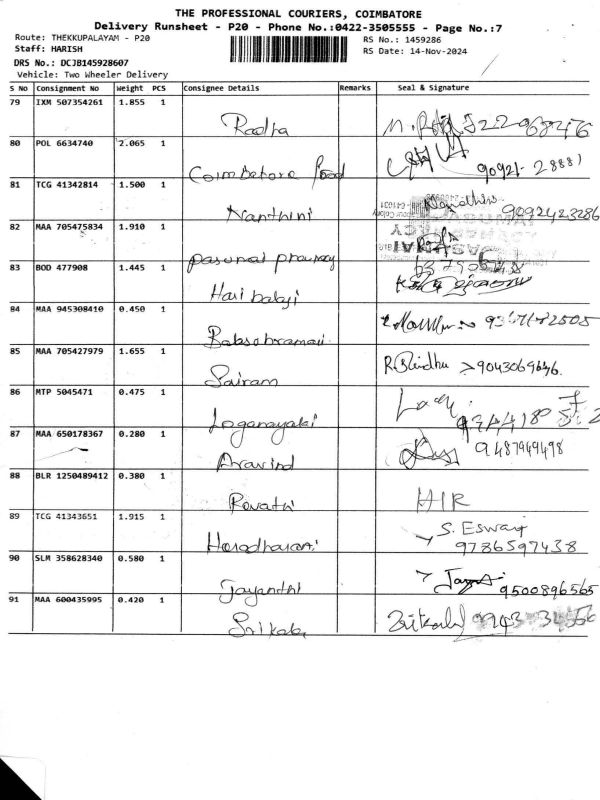 THE PROFESSIONAL COURIERS, COIMBATORE
Delivery Runsheet - P20 - Phone No.:0422-3505555 - Page No.:7
Route: THEKKUPALAYAM - P20 RS No.: 1459286
Staff: HARISH RS Date: 14-Nov-2024
DRS No.: DCJB145928607
Vehicle: Two Wheeler Delivery
S No Consignment No Weight PCS Consignee Details Remarks Seal & Signature
79 IXM 507354261 1.855 1
Radha
80 POL 6634740 2.065 1
Coimbatore food 90921-28881
81 TCG 41342814 1.500 1
Nanthini 9092423286
82 MAA 705475834 1.910 1
83 BOD 477908 1.445 1
Hari balaji
84 MAA 945308410 0.450 1
85 MAA 705427979 1.655 1
Sairam 9043069646.
86 MTP 5045471 0.475 1
Loganayaki
87 MAA 650178367 0.280 1
Aravind 9487949498
88 BLR 1250489412 0.380 1
Revathi HIR
89 TCG 41343651 1.915 1
S. Eswari
9786597438
90 SLM 358628340 0.580 1
Jayanthi 9500896565
91 MAA 600435995 0.420 1
Srikala